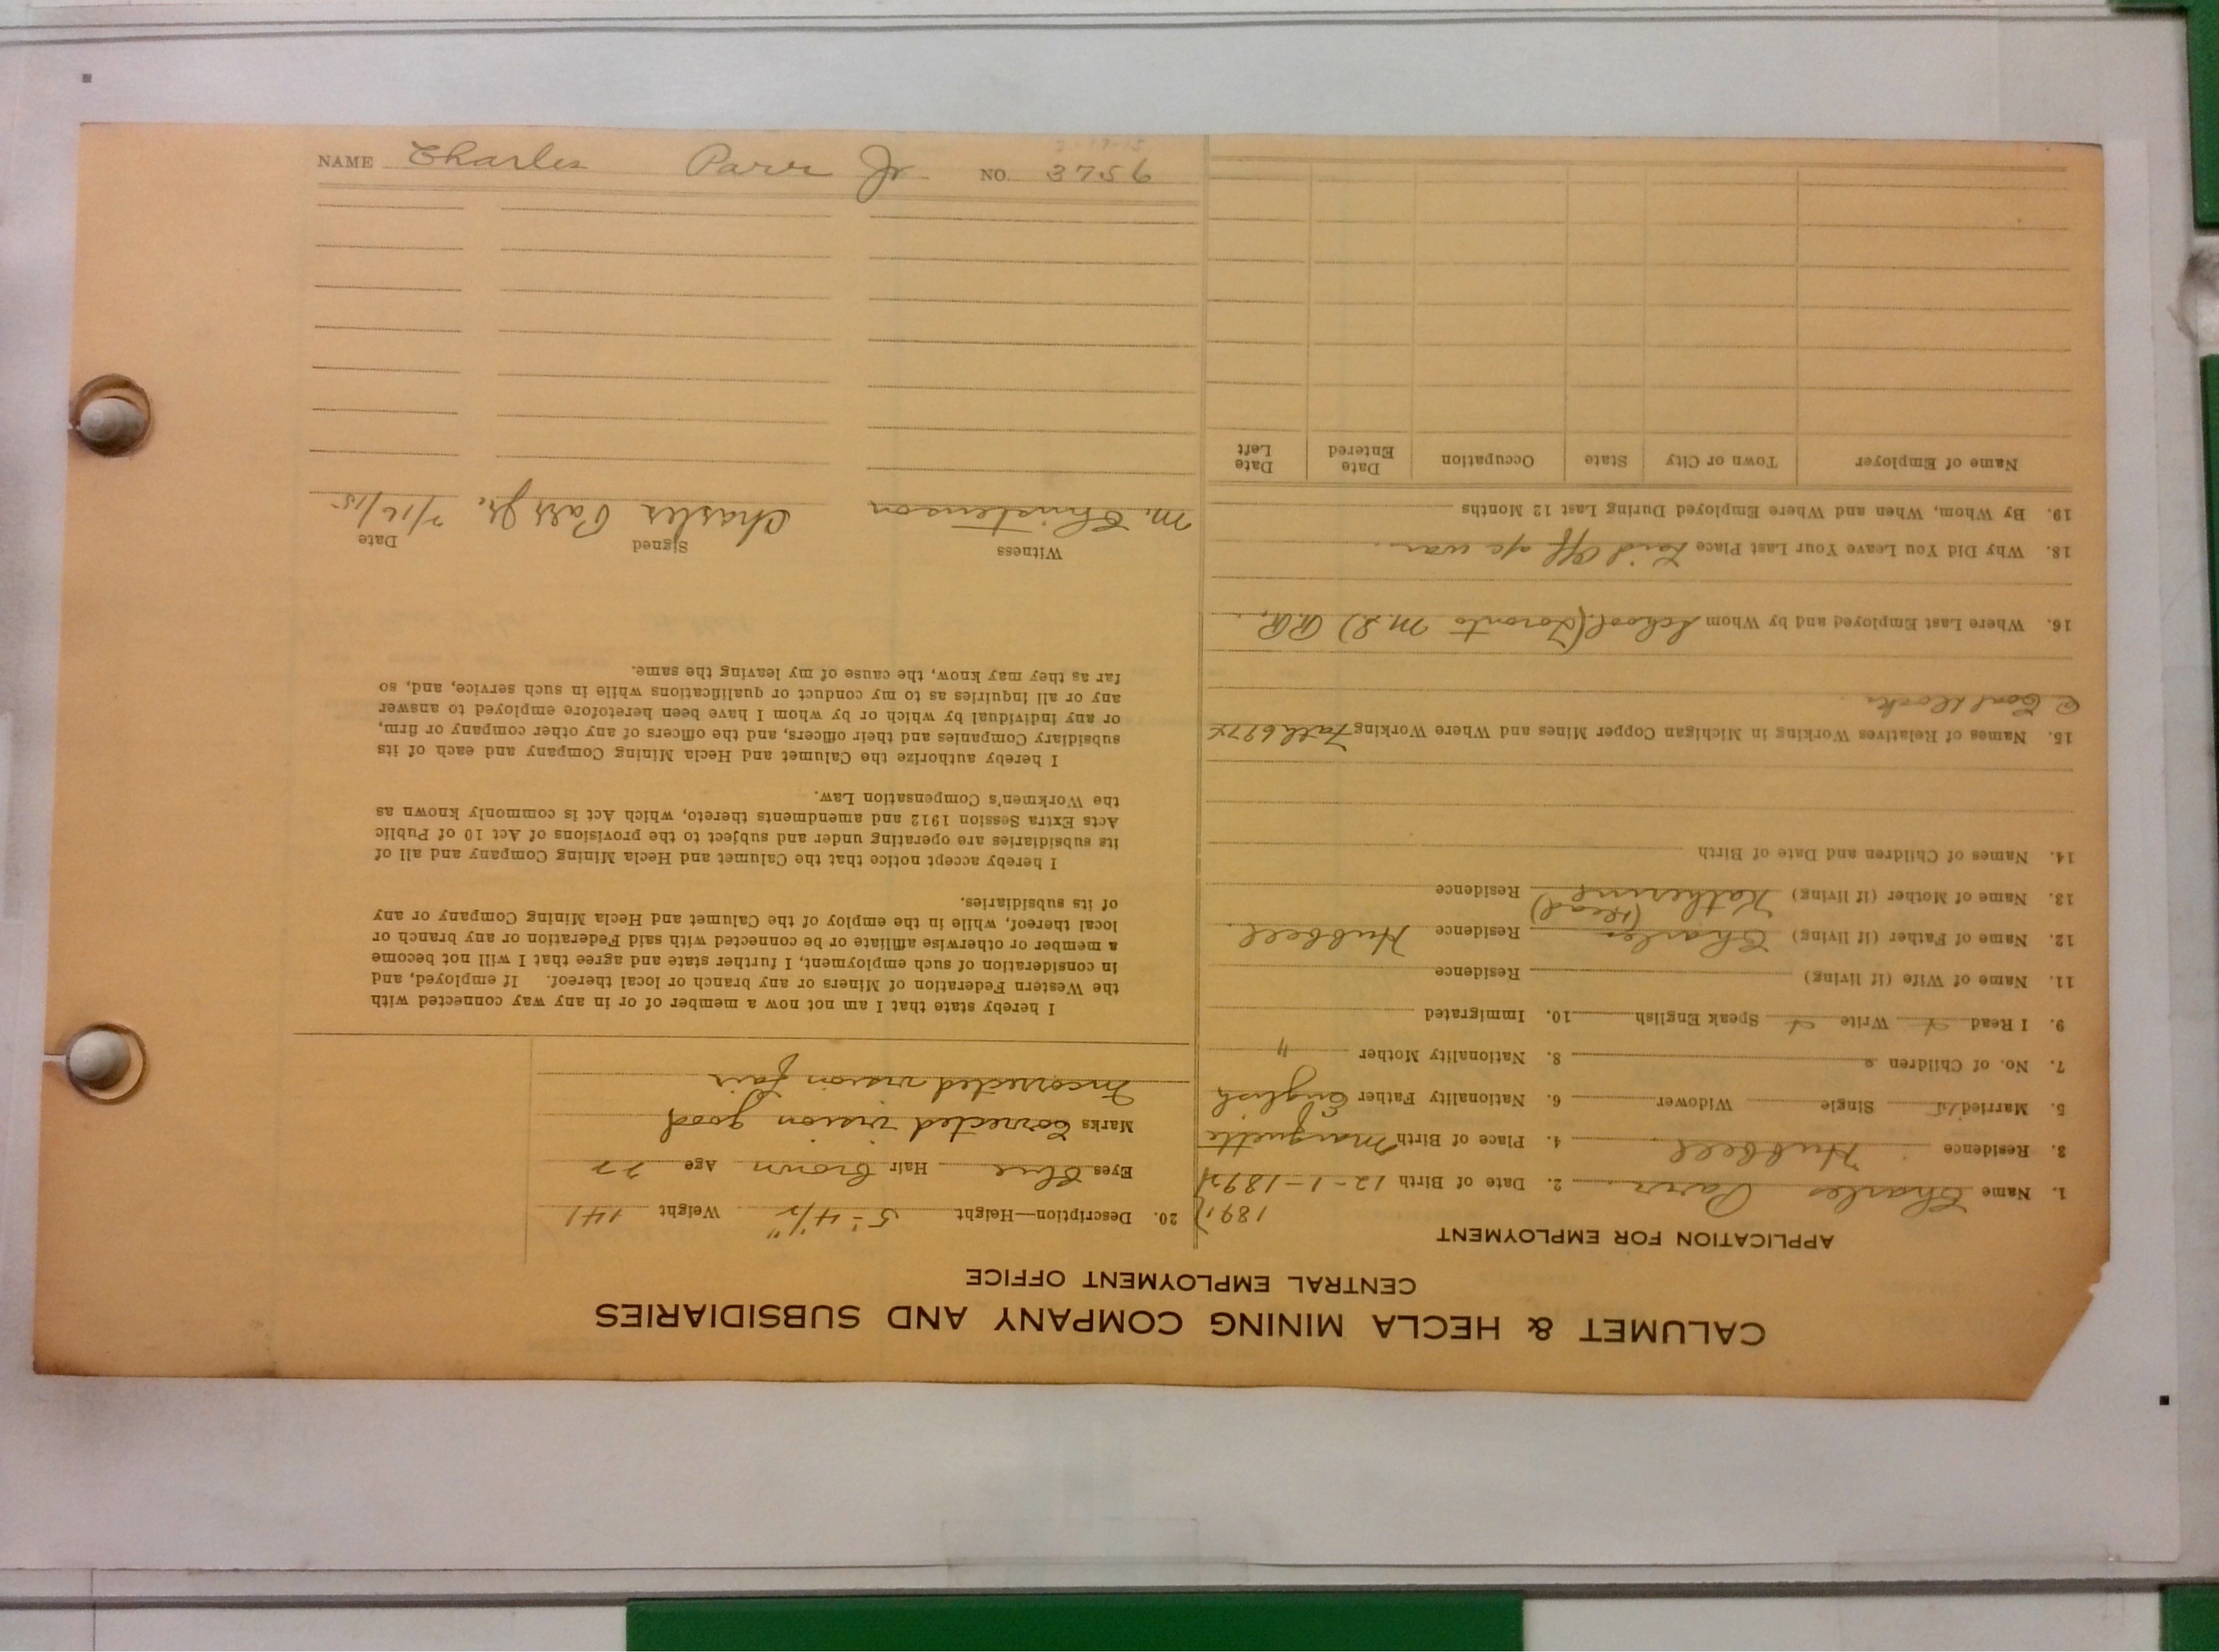 NAME Charles Parr Jr. NO. 3756
CALUMET & HECLA MINING COMPANY AND SUBSIDIARIES
CENTRAL EMPLOYMENT OFFICE
APPLICATION FOR EMPLOYMENT
1891
1. Name Charles Parr 2. Date of Birth 12-1-1892
3. Residence Hubbell 4. Place of Birth Marquette
5. Married Single Widower 6. Nationality Father English
7. No. of Children 8. Nationality Mother "
9. I Read Write Speak English 10. Immigrated
11. Name of Wife (if living) Residence
12. Name of Father (if living) Charles Residence Hubbell
(Dead)
13. Name of Mother (if living) Katherine Residence
14. Names of Children and Date of Birth
15. Names of Relatives Working in Michigan Copper Mines and Where Working Fath
@ Coal Docks
16. Where Last Employed and by Whom School (Toronto
18. Why Did You Leave Your Last Place Laid Off a/c war
19. By Whom, When and Where Employed During Last 12 Months
Name of Employer Town or City State Occupation Date Entered Date Left
20. Description—Height 5'-4 1/2" Weight 141
Eyes Blue Hair Brown Age 22
Marks Corrected vision good
Incorrected vision fair
I hereby state that I am not now a member of or in any way connected with
the Western Federation of Miners or any branch or local thereof. If employed, and
in consideration of such employment, I further state and agree that I will not become
a member or otherwise affiliate or be connected with said Federation or any branch or
local thereof, while in the employ of the Calumet and Hecla Mining Company or any
of its subsidiaries.
I hereby accept notice that the Calumet and Hecla Mining Company and all of
its subsidiaries are operating under and subject to the provisions of Act 10 of Public
Acts Extra Session 1912 and amendments thereto, which Act is commonly known as
the Workmen's Compensation Law.
I hereby authorize the Calumet and Hecla Mining Company and each of its
subsidiary Companies and their officers, and the officers of any other company or firm,
or any individual by which or by whom I have been heretofore employed to answer
any or all inquiries as to my conduct or qualifications while in such service, and, so
far as they may know, the cause of my leaving the same.
Witness Signed Date
M. Christenson Charles Parr Jr. 7/16/15